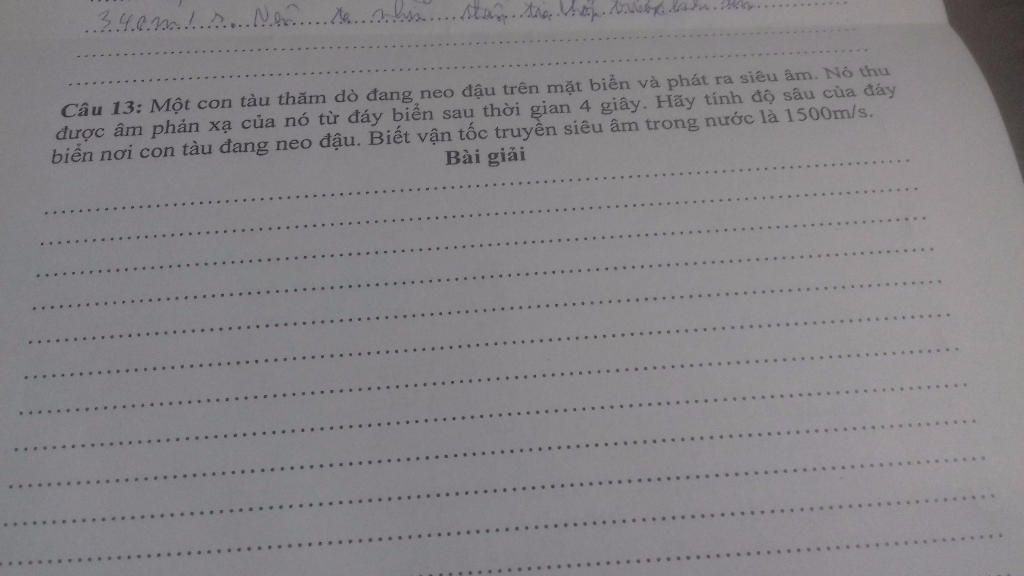 340m/s. Nên ta nhìn
Câu 13: Một con tàu thăm dò đang neo đậu trên mặt biển và phát ra siêu âm. Nó thu
được âm phản xạ của nó từ đáy biển sau thời gian 4 giây. Hãy tính độ sâu của đáy
biển nơi con tàu đang neo đậu. Biết vận tốc truyền siêu âm trong nước là 1500m/s.
Bài giải